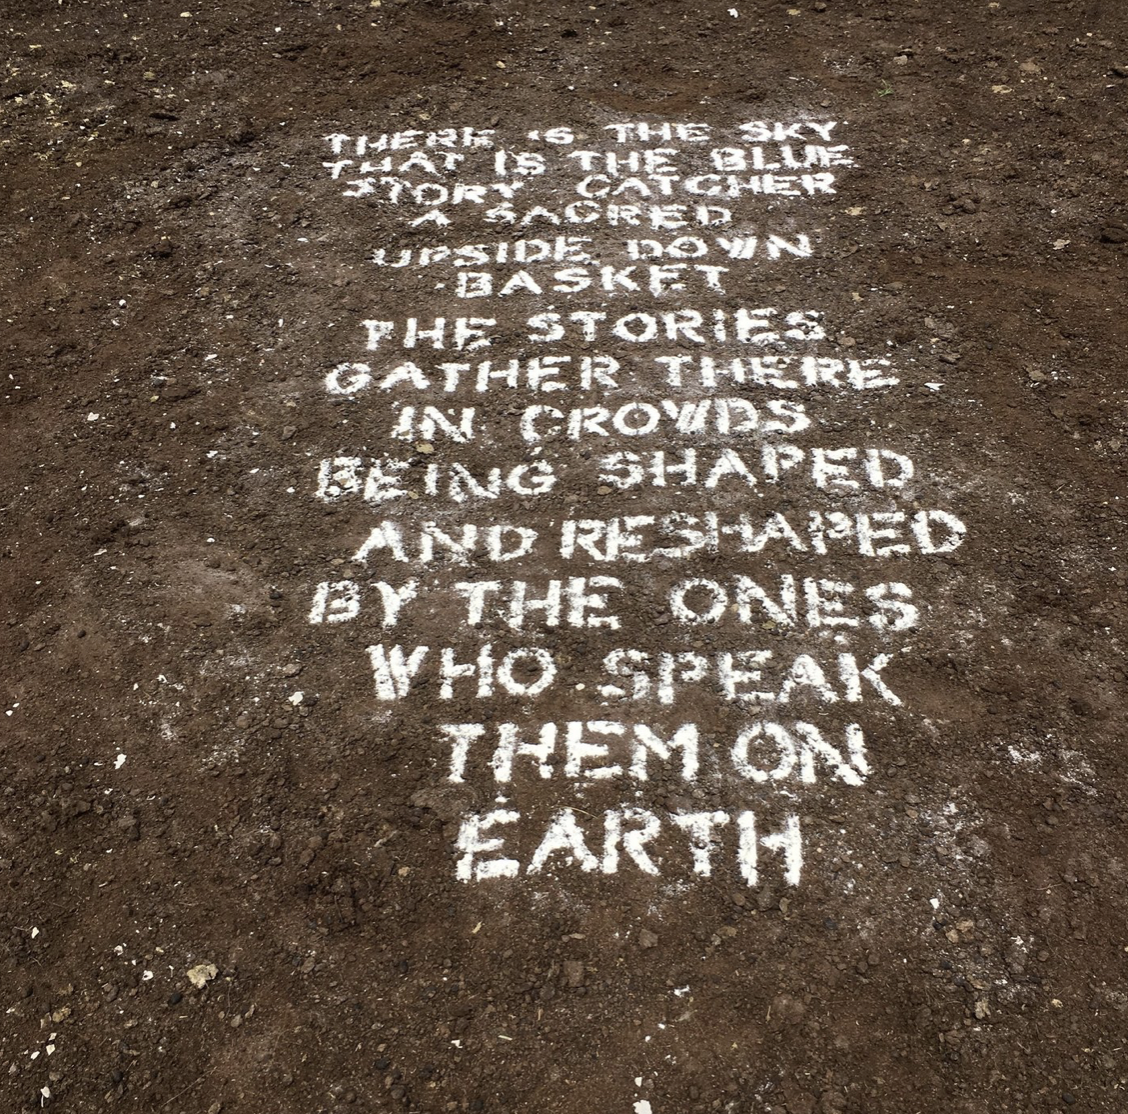 THERE IS THE SKY
THAT IS THE BLUE
STORY CATCHER
A SACRED
UPSIDE DOWN
BASKET
THE STORIES
GATHER THERE
IN CROWDS
BEING SHAPED
AND RESHAPED
BY THE ONES
WHO SPEAK
THEM ON
EARTH